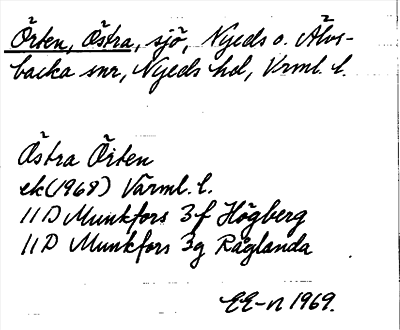 Örten, Östra, sjö, Nyeds o. Älvs-
backa snr, Nyeds hd, Värml. l.
Östra Örten
ek (1968) Värml. l.
11 D Munkfors 3f Högberg
11 D Munkfors 3g Råglanda
EE-n 1969.